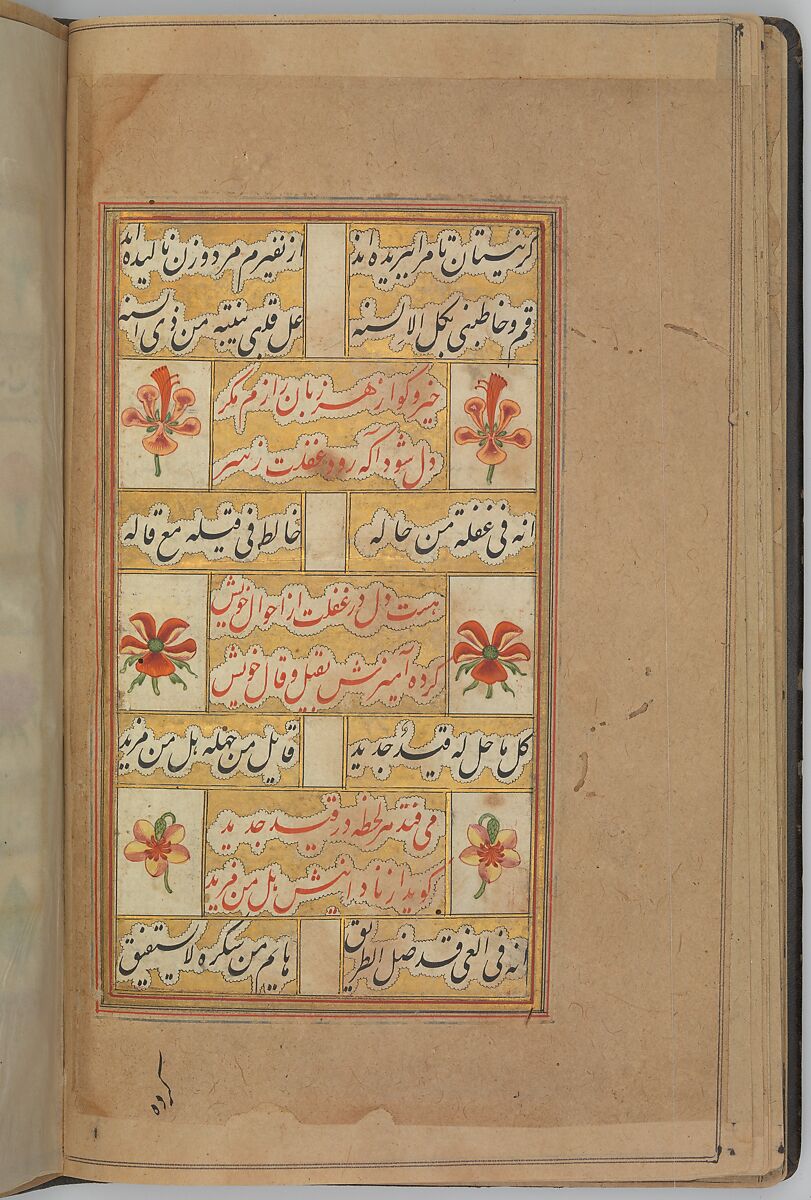 کز نیستان تا مرا ببریده اند از نفیرم مرد و زن نالیده اند
قم و خاطبنی بکل الالسنه عل قلبی ینتبه من ذی السنه
خیز و گو از هر زبان رازم مکر
دل شود اکه رود غفلت ز سر
انه فی غفلة من حاله خالط فی قیله مع قاله
هست دل در غفلت از احوال خویش
کرده آمیزش بقیل و قال خویش
کل ما حل له قید جدید قایل من جهله هل من مزید
می فتد هر لحظه در قید جدید
کوید از نادانیش هل من مزید
انه فی الغی قد ضل الطریق هایم من سکره لا یستفیق